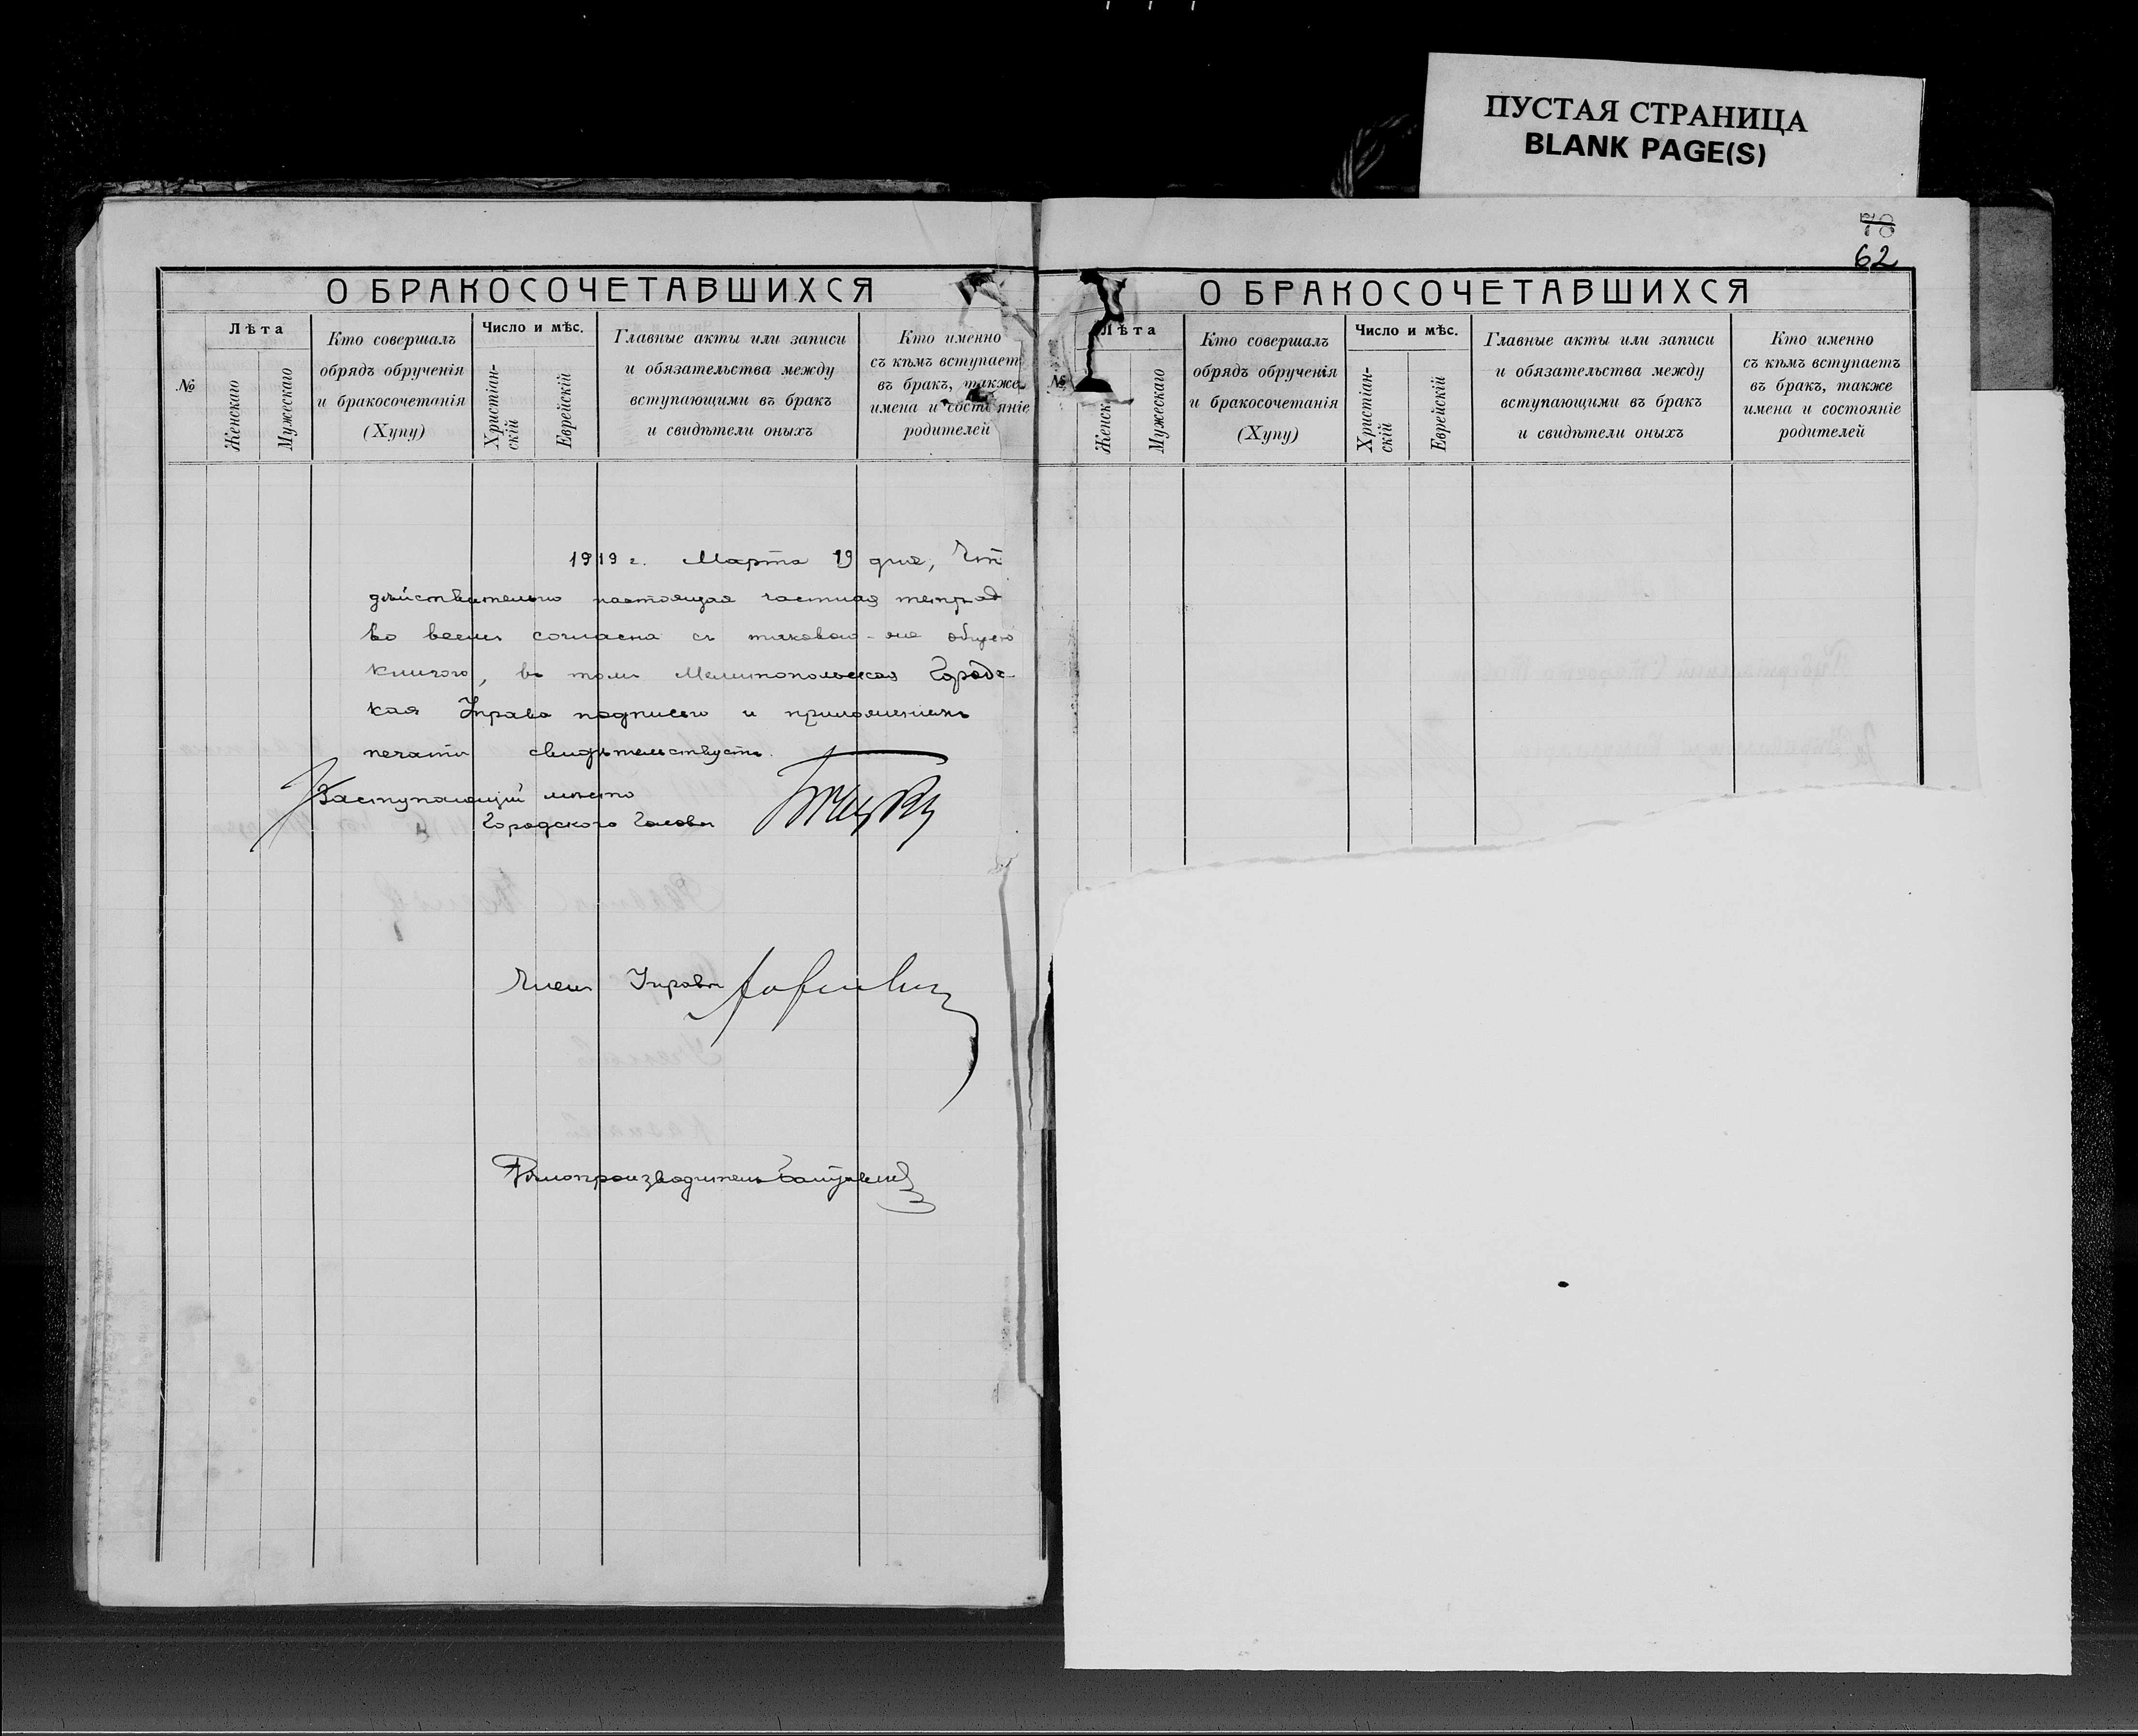 ПУСТАЯ СТРАНИЦА
BLANK PAGE(S)
78
62
О БРАКОСОЧЕТАВШИХСЯ
№
Лѣта
Женскаго
Мужескаго
Кто совершалъ
обрядъ обрученія
и бракосочетанія
(Хупу)
Число и мѣс.
Христіан-
скій
Еврейскій
Главные акты или записи
и обязательства между
вступающими въ бракъ
и свидѣтели оныхъ
Кто именно
съ кѣмъ вступаетъ
въ бракъ, также
имена и состояніе
родителей
1919 г. Марта 19 дня, Что
дѣйствительно настоящая частная тетрад
во всемъ согласна съ таковою-же общею
книгою, въ томъ Мелитопольская Городс-
кая Управа подписью и приложеніемъ
печати свидѣтельствуетъ.
Заступающій мѣсто
Городского Головы
Членъ Управы
Дѣлопроизводитель
О БРАКОСОЧЕТАВШИХСЯ
№
Лѣта
Женск
Мужескаго
Кто совершалъ
обрядъ обрученія
и бракосочетанія
(Хупу)
Число и мѣс.
Христіан-
скій
Еврейскій
Главные акты или записи
и обязательства между
вступающими въ бракъ
и свидѣтели оныхъ
Кто именно
съ кѣмъ вступаетъ
въ бракъ, также
имена и состояніе
родителей